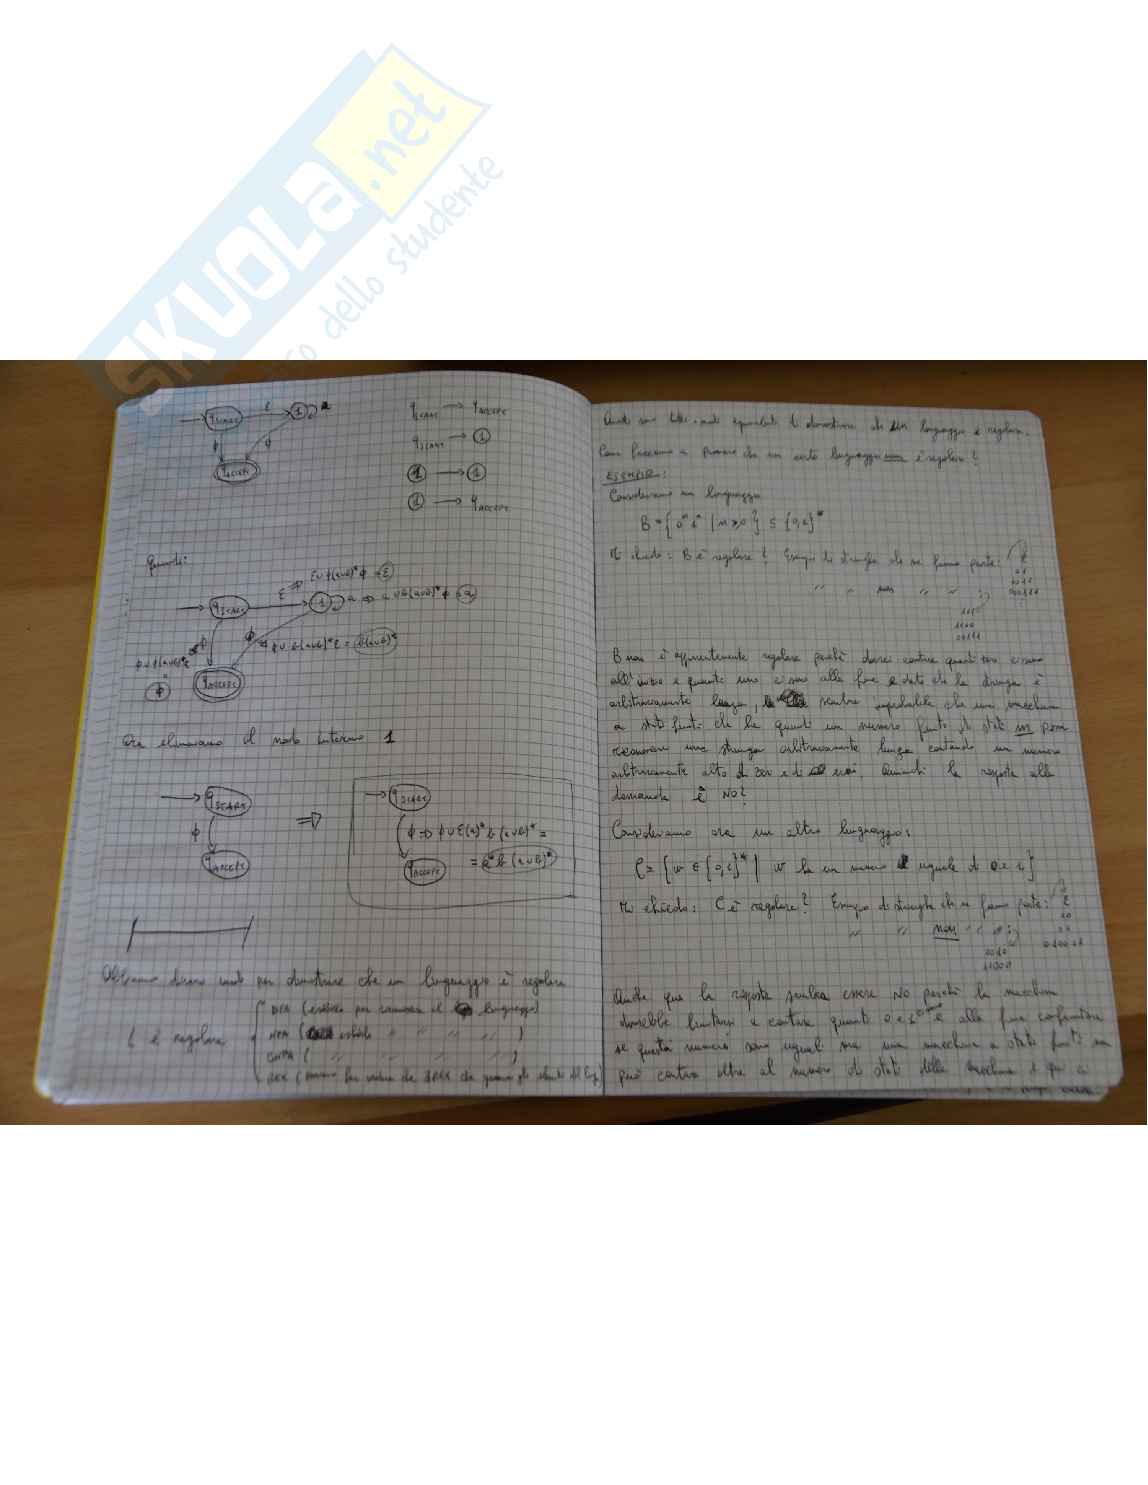 SKUOLA.net
dello studente
q START
ε
1
a
ϕ
ϕ
q ACCEPT
q START → q ACCEPT
q START → 1
1 → 1
1 → q ACCEPT
Quindi:
ε ⇒ ε ∪ ϕ(a∪b)* ϕ = ε
q START
1
a ⇒ a ∪ b(a∪b)* ϕ = a
ϕ
ϕ ∪ b(a∪b)* ε = b(a∪b)*
ϕ ∪ ϕ(a∪b)* ε
ϕ
q ACCEPT
Ora eliminiamo il nodo interno 1
q START
ϕ
q ACCEPT
⇒
q START
ϕ ⇒ ϕ ∪ ε(a)* b (a∪b)* =
= a* b (a∪b)*
q ACCEPT
Abbiamo diversi modi per dimostrare che un linguaggio è regolare
L è regolare
DFA (esibirlo per riconoscere il linguaggio)
NFA ( esibirlo " " " )
GNFA ( " " " " )
REX (
Questi sono tutti modi equivalenti di dimostrare che un linguaggio è regolare.
Come facciamo a provare che un certo linguaggio non è regolare?
ESEMPIO:
Consideriamo un linguaggio
B = { 0ⁿ 1ⁿ | n ≥ 0 } ⊆ {0,1}*
Mi chiedo: B è regolare? Esempio di stringhe che ne fanno parte:
ε
01
0011
000111
" " non " " :
1110
1100
00111
B non è apparentemente regolare perché dovrei contare quanti zero ci sono
all'inizio e quanti uno ci sono alla fine e dato che la stringa è
arbitrariamente lunga, sembra improbabile che una macchina
a stati finiti che ha quindi un numero finito di stati non possa
riconoscere una stringa arbitrariamente lunga contando un numero
arbitrariamente alto di zeri e di uni. Quindi la risposta alla
domanda è NO!
Consideriamo ora un altro linguaggio:
C = { w ∈ {0,1}* | w ha un numero uguale di 0 e 1 }
Mi chiedo: C è regolare? Esempio di stringhe che ne fanno parte:
ε
10
01
010011
" " non " " :
0010
11000
Anche qui la risposta sembra essere NO perché la macchina
dovrebbe limitarsi a contare quanti 0 e 1 e alla fine confrontare
se questi numeri sono uguali ma una macchina a stati finiti non
può contare oltre al numero di stati della macchina e qui ci